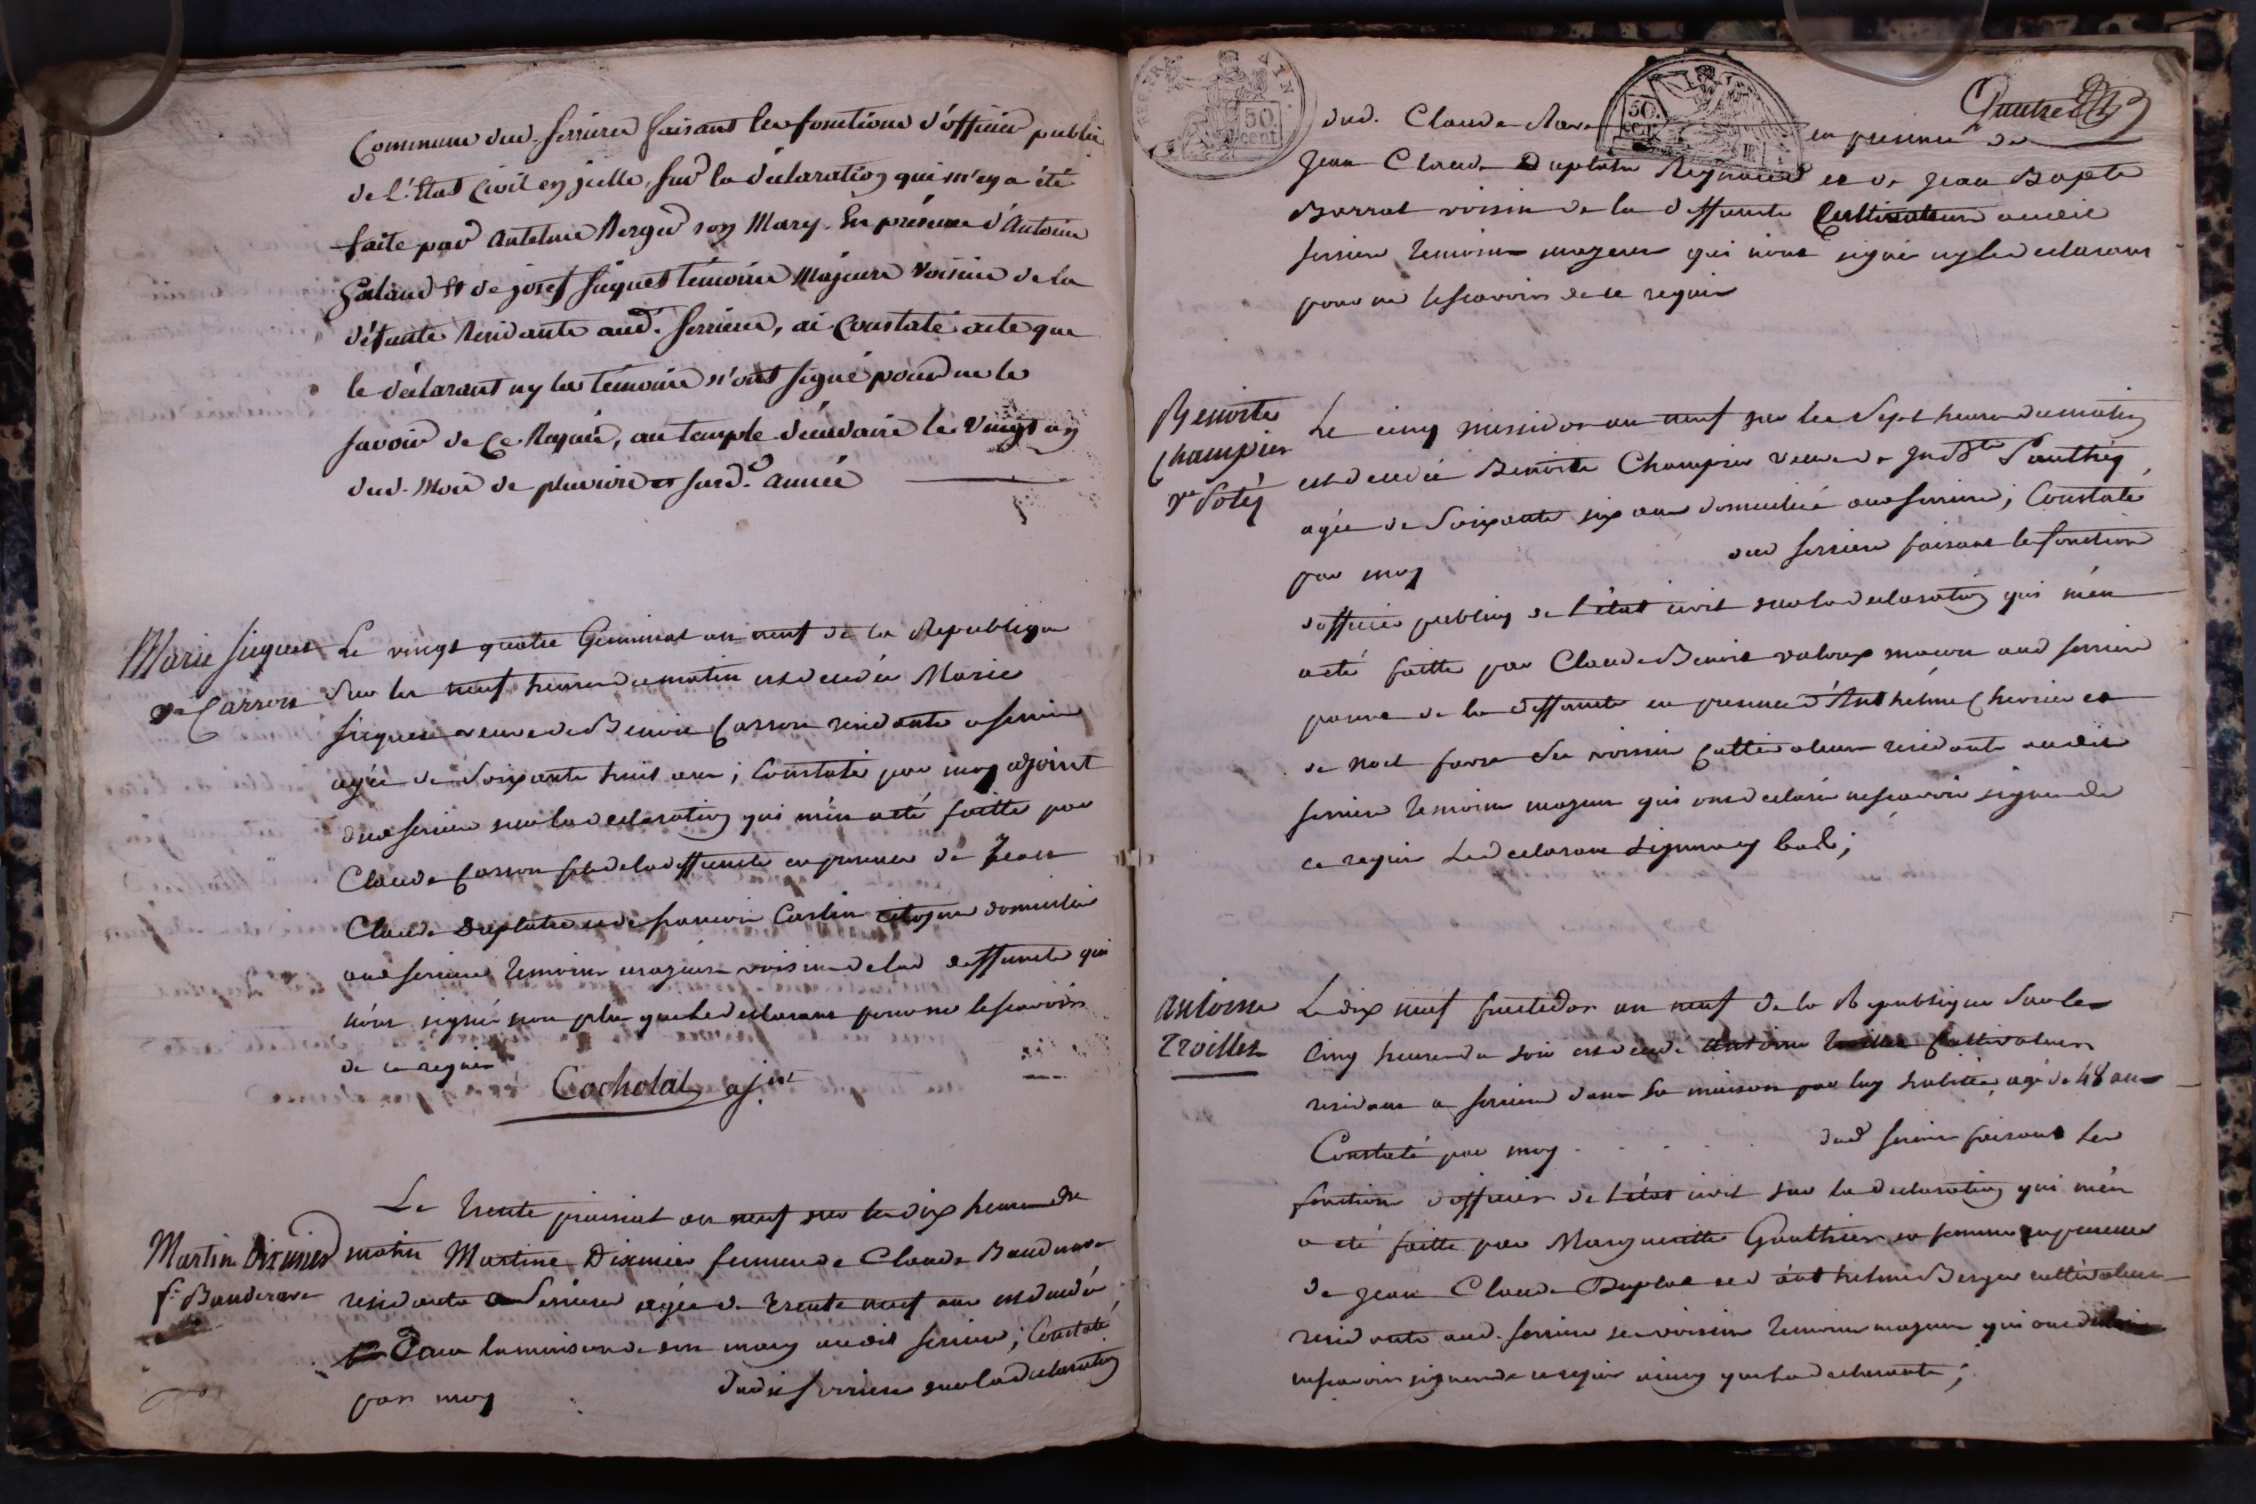 Commune dud. serriere faisant les fonctions d'officier public
de L'Etat Civil en jcelle, sur la déclaration qui m'en a été
faite par Antelme Berger son Mary. En présence d'Antoine
Galand Et de josef siquet témoins Majeurs voisins de la
défunte Residants aud. serriere, ai constaté acte que
le déclarant ny les témoins n'ont signé pour ne le
savoir de ce Requis, au temple décadaire le vingt un
dud. Mois de pluviose et surd. année
Marie siquet
ve Carron
Le vingt quatre Germinal an neuf de la Republique
sur les neuf heures du matin est decedée Marie
siquet veuve de Benoit Carron residante a serriere
agée de soixante huit ans ; Constaté par moy ajoint
dud serriere sur la declaration qui m'en a eté faitte par
Claude Carron fils de la deffunte en presence de Jean
Claude Duplatre et de francois Carlin citoyens domiciliés
aud serriere temoins majeurs voisins de lad deffunte qui
n'ont signés non plus que le declarant pour ne le scavoir
de ce requis
Cocholat ajt
Martine Dixmier
fe Bauderave
Le trente prairial an neuf sur les dix heures du
matin Martine Dixmier femme de Claude Bauderave
residante a serriere agée de trente neuf ans est decedée
dans la maison de son mary audit serriere ; Constaté
par moy dudit serriere sur la declaration
REP. FRA.
50 cent
50. cent.
dud. Claude en presence de
Jean Claude Duplatre Reynaud et de Jean Bapte
Barral voisin de la deffunte Cultivateurs audit
serriere temoins majeurs qui n'ont signé ny le declarant
pour ne le scavoir de ce requis
Benoite
Champier
ve Potéy
Le cinq messidor an neuf sur les sept heures du matin
est decedée Benoite Champier veuve de Jn Bte Pauthéy
agée de soixante six ans domiciliée aud serriere ; Constaté
par moy dud serriere faisant les fonctions
d'officier publiq de l'état civil sur la declaration qui m'en
a eté faitte par Claude Benoit valoux macon aud serriere
parent de la deffunte en presence d'Anthelme Chevrier et
de noel favre ses voisins Cultivateurs residants audit
serriere temoins majeurs qui ont declaré ne scavoir signer de
ce requis Le declarant signera en bas ;
Antoine
Troillet
Le dix neuf fructidor an neuf de la Republique sur les
cinq heures du soir est decedé Antoine Troillet Cultivateur
residant a serriere dans la maison par luy habitée, agé de 48 ans
Constaté par moy dud serriere faisant les
fonctions d'officier de l'état civil sur la declaration qui m'en
a eté faitte par Marguerite Gauthier sa femme en presence
de Jean Claude Duplatre et d'anthelme Berger cultivateurs
residants aud. serriere ses voisins temoins majeurs qui ont declaré
ne scavoir signer de ce requis ainsy que la declarante ;